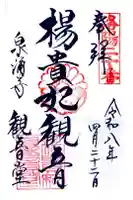 奉拝
令和八年
四月二十二日
楊貴妃観音
泉涌寺
観音堂